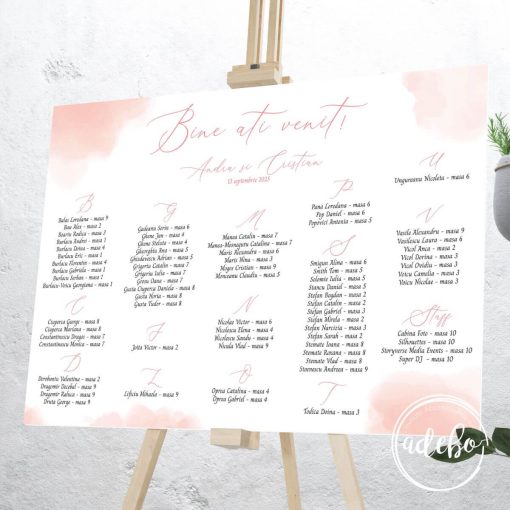 Bine ati venit!
Andra si Cristian
13 septembrie 2025
B
Balas Loredana - masa 9
Bau Alex - masa 2
Boariu Rodica - masa 3
Burlacu Andrei - masa 1
Burlacu Doina - masa 1
Burlacu Eric - masa 1
Burlacu Florentin - masa 4
Burlacu Gabriela - masa 1
Burlacu Serban - masa 1
Burlacu-Voicu Georgiana - masa 1
C
Ciuperca George - masa 8
Ciuperca Mariana - masa 8
Constantinescu Dragos - masa 7
Constantinescu Monica - masa 7
D
Dorobantu Valentina - masa 2
Dragomir Decebal - masa 9
Dragomir Raluca - masa 9
Druta George - masa 9
G
Gadeanu Sorin - masa 6
Ghone Jan - masa 4
Ghone Steluta - masa 4
Gheorghita Ana - masa 5
Ghidersa Adrian - masa 5
Grigoriu Catalin - masa 7
Grigoriu Iulia - masa 7
Groza Dana - masa 7
Gusta Ciuperca Daniela - masa 8
Gusta Horia - masa 8
Gusta Tudor - masa 8
J
Joita Victor - masa 2
L
Lificiu Mihaela - masa 9
M
Manea Catalin - masa 7
Manea-Masnagutu Catalina - masa 7
Maris Alexandra - masa 6
Maris Nina - masa 3
Mogos Cristian - masa 9
Monceanu Claudiu - masa 5
N
Nicolae Victor - masa 6
Nicolescu Elena - masa 4
Nicolescu Sandu - masa 4
Nicula Vlad - masa 9
O
Oprea Catalina - masa 4
Oprea Gabriel - masa 4
P
Pana Loredana - masa 6
Pop Daniel - masa 6
Popovici Antonia - masa 5
S
Smigun Alina - masa 6
Smith Tom - masa 5
Solomie Iulia - masa 5
Stancu Daniel - masa 5
Stefan Bogdan - masa 2
Stefan Catalin - masa 2
Stefan Gabriel - masa 3
Stefan Mirela - masa 2
Stefan Narcizia - masa 3
Stefan Sarah - masa 2
Stomate Ioana - masa 8
Stomate Roxana - masa 8
Stomate Vlad - masa 8
Stoenescu Andreea - masa 9
T
Todica Doina - masa 3
U
Ungureanu Nicoleta - masa 6
V
Vasile Alexandru - masa 9
Vasilescu Laura - masa 6
Vicol Anca - masa 2
Vicol Dorina - masa 3
Vicol Ovidiu - masa 3
Voicu Camelia - masa 3
Voicu Nicolae - masa 3
Staff
Cabina Foto - masa 10
Silhouettes - masa 10
Storyverse Media Events - masa 10
Super DJ - masa 10
adebo